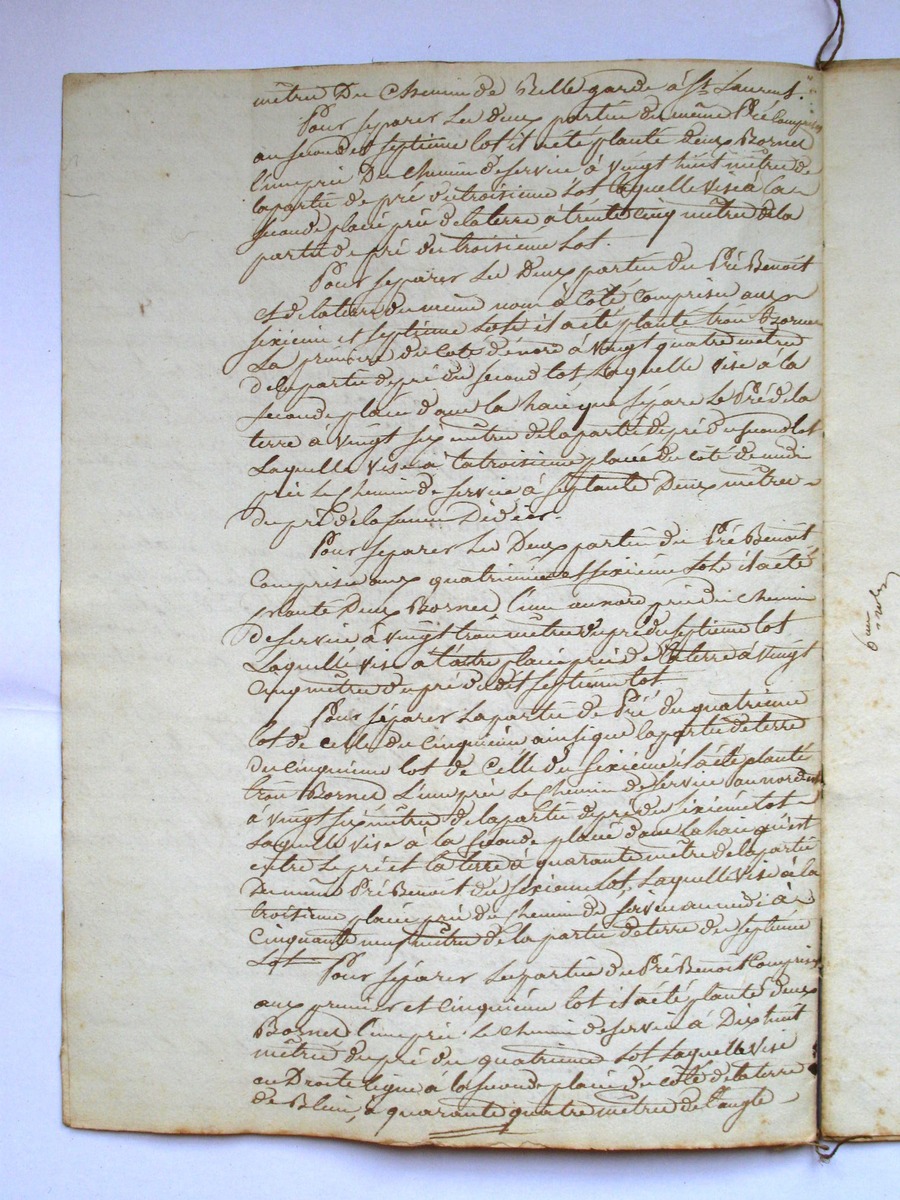 mêtres Du Chemin de Bellegarde à St Laurent.
Pour separer Les deux parties du même Pré Comprises
au second et septieme lot il a été planté deux Bornes
l'une près Du Chemin de service à vingt huit mêtres de
la partie de pré du troisieme Lot laquelle vise à la
seconde placée près de la terre à trente cinq mêtres de la
partie de pré du troisieme Lot.
Pour séparer Les Deux parties du Pré Benoit
et de la terre du meme nom à Coté Comprises aux
sixieme et septieme Lots il a été planté trois Bornes
La premiere du coté du nord à vingt quatre mêtres
de la partie de pré du second lot Laquelle vise à la
seconde placée dans la haie que sépare Le Pré de la
terre à vingt six mêtres de la partie de pré du second lot
Laquelle vise à la troisieme placée du coté du midi
près le Chemin de service à septante Deux mêtres
du pré de la
Pour séparer Les Deux parties du Pré Benoit
Comprises aux quatrieme et sixieme Lots il a été
planté Deux Bornes l'une au nord près du chemin
de service à vingt trois mêtres du pré du septieme lot
Laquelle vise à l'autre placée près de la terre à vingt
cinq mêtres du pré dudit septieme lot
Pour séparer La partie de Pré du quatrieme
lot de celle du Cinquieme ainsi que la partie de terre
du cinquieme lot de Celle du sixieme il a été planté
trois Bornes L'une près Le chemin de service au nord
à vingt six mêtres de la partie de pré du sixieme lot
Laquelle vise à la seconde placée dans la haie qui est
entre le pré et la terre à quarante mêtres de la partie
du même Pré Benoit du sixieme Lot, Laquelle vise à la
troisieme placée près du chemin de service au midi à
Cinquante neuf mêtres de la partie de terre du septieme
Lot
Pour séparer Les parties du Pré Benoit Comprises
aux premier et cinquieme lot il a été planté deux
Bornes l'une près Le chemin de service à Dix huit
mêtres du pré du quatrieme Lot Laquelle vise
en Droite ligne à la seconde placée du coté de la terre
de à quarante quatre mêtres de l'angle